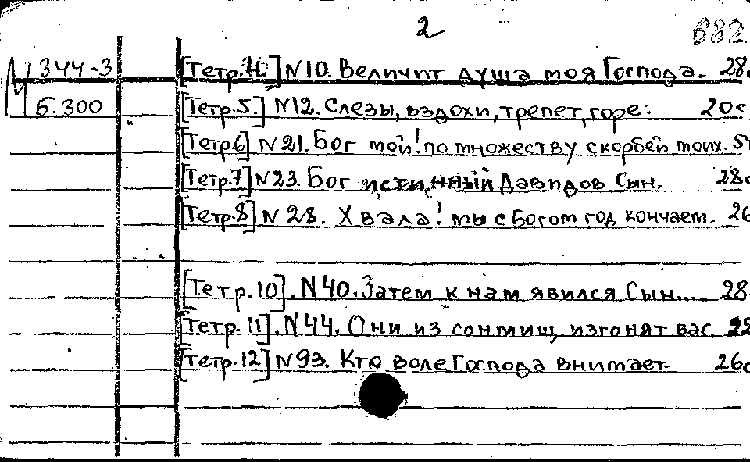 2 682
1344-3 [Тетр. N10. Величит душа моя Господа. 28
Б. 300 [Тетр. 5] N12. Слезы, вздохи, трепет, горе: 20с
[Тетр 6] N21. Бог мой! по множеству скорбей моих. 5
[Тетр. 7] N23. Бог истинный Давидов Сын. 28с
[Тетр. 8] N28. Хвала! мы с Богом год кончаем. 26
[Тетр. 10]. N40. Затем к нам явился Сын... 28
[Тетр. 11]. N44. Они из сонмищ, изгонят вас. 22
[Тетр. 12] N93. Кто воле Господа внимает. 26с